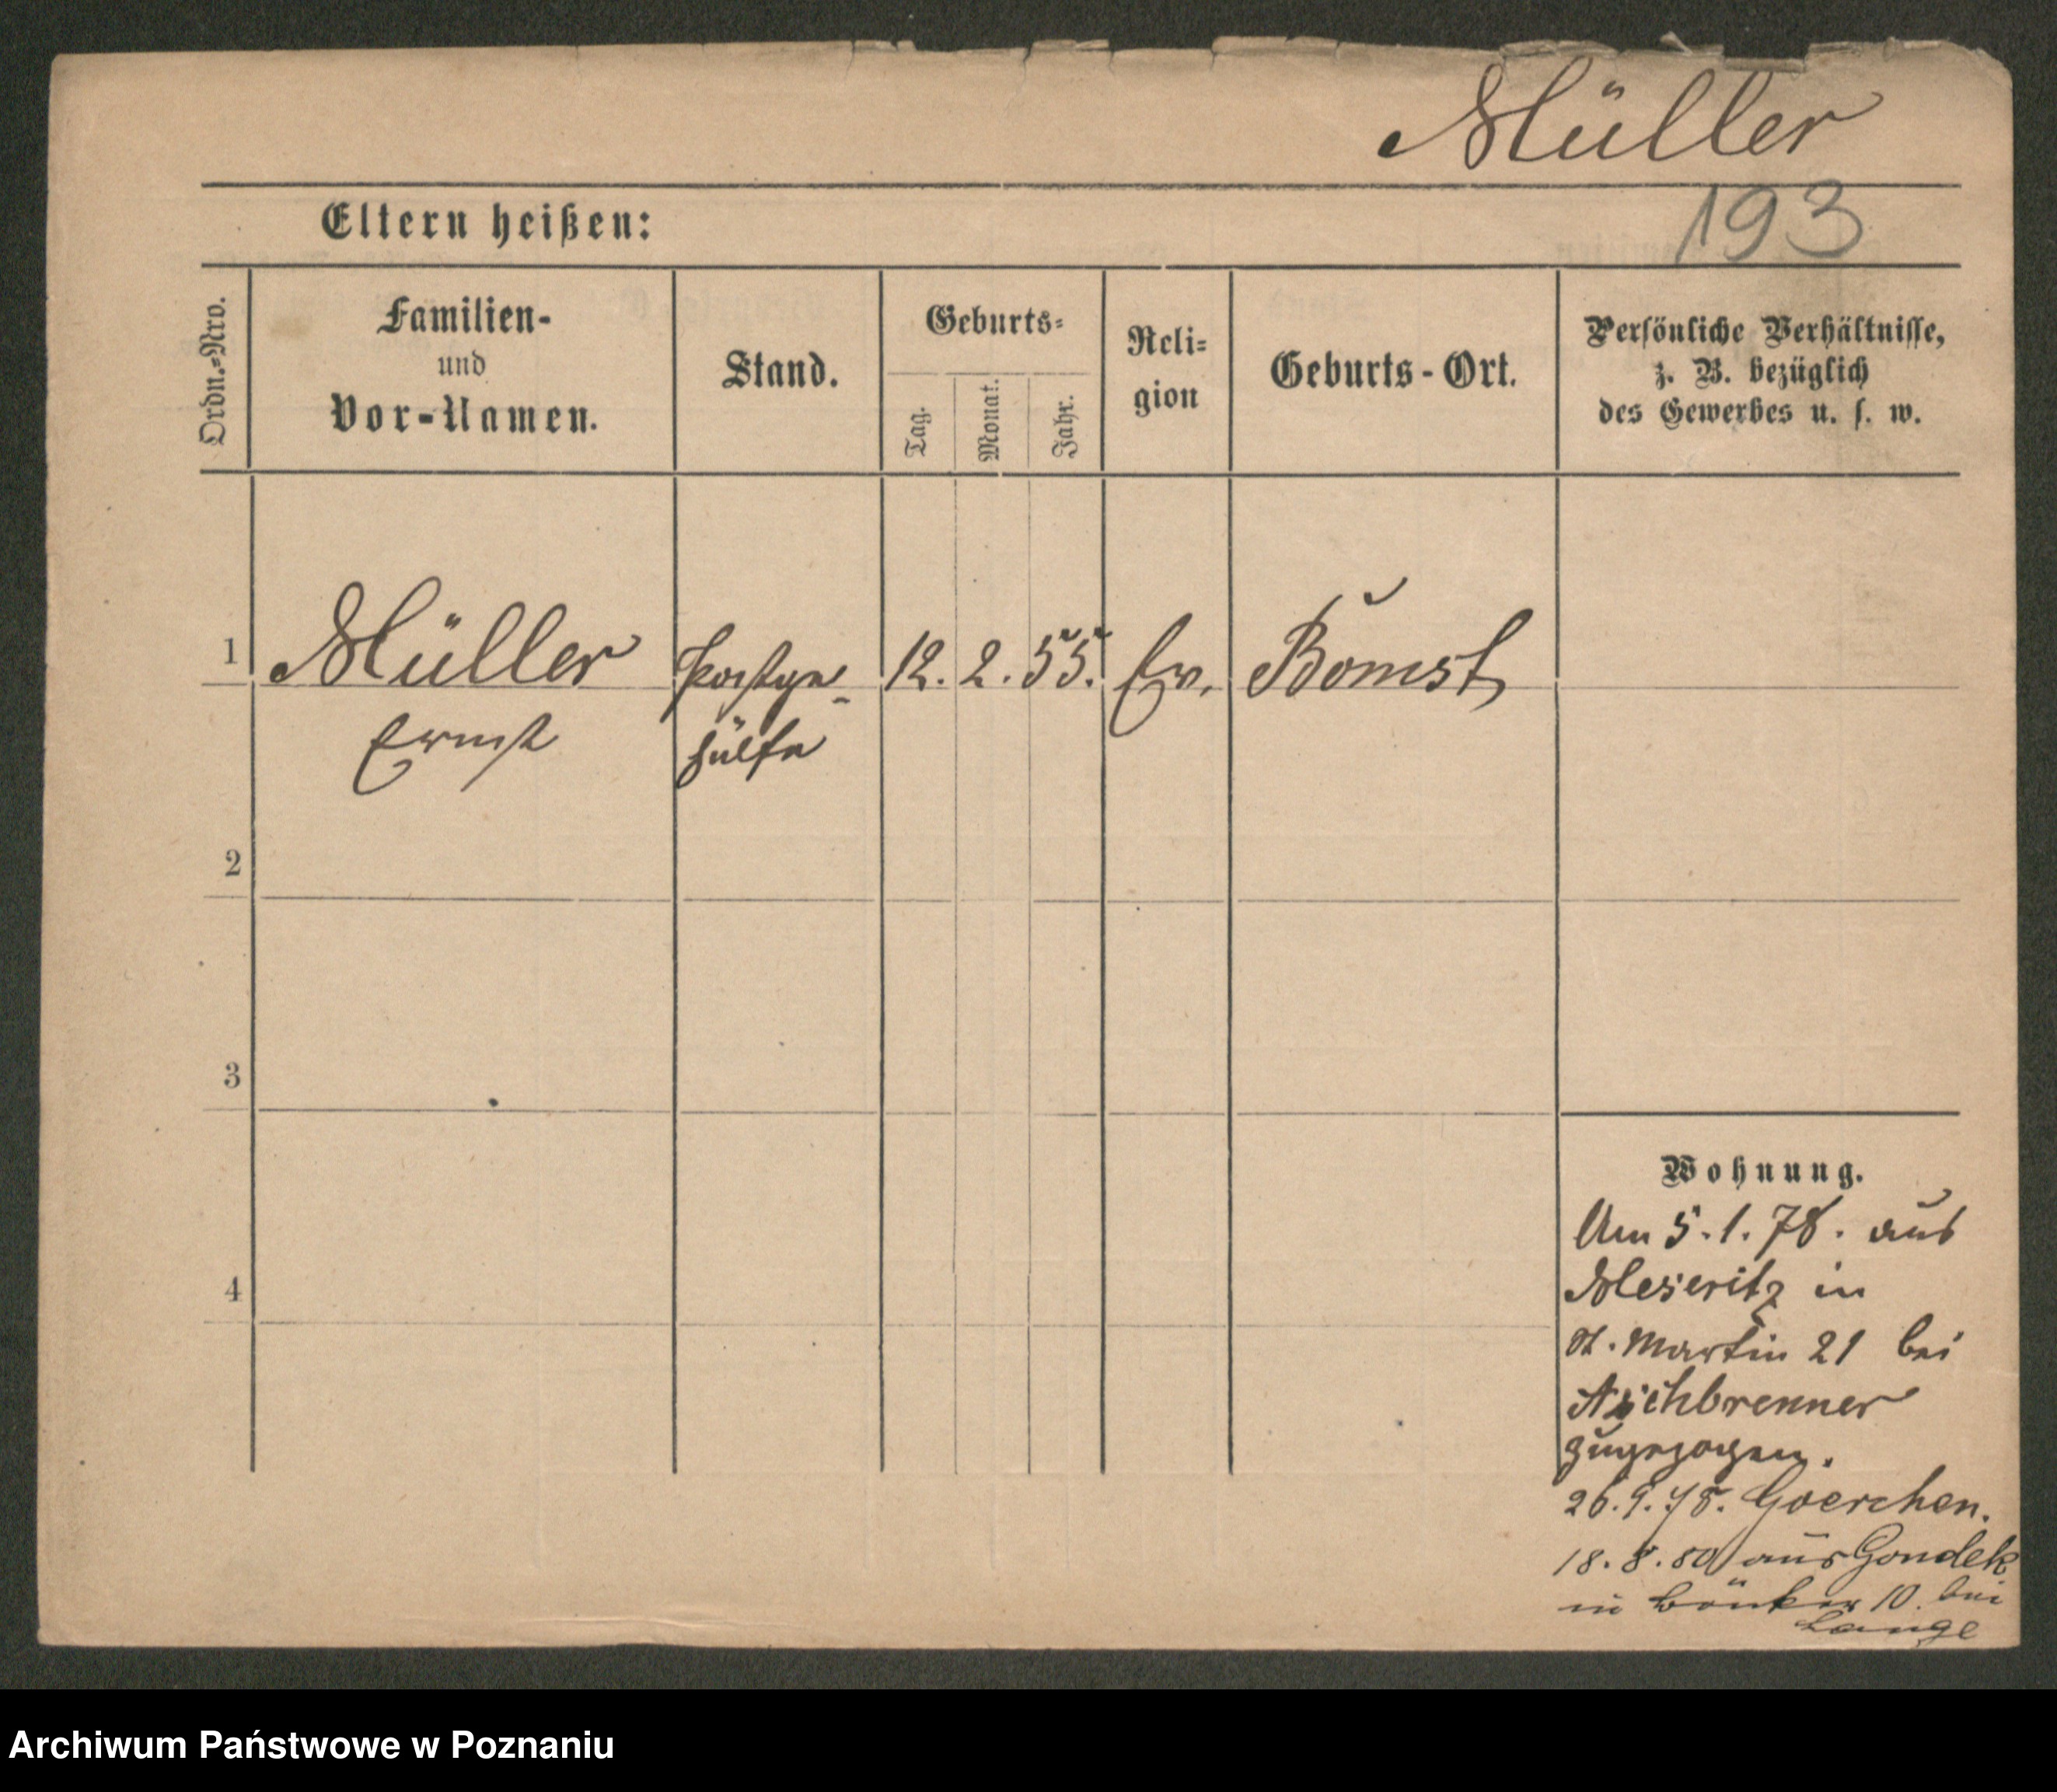 Müller
193
Eltern heißen:
Ordn.-Nro.
Familien-
und
Vor-Namen.
Stand.
Geburts-
Tag.
Monat.
Jahr.
Reli-
gion
Geburts-Ort.
Persönliche Verhältnisse,
z. B. bezüglich
des Gewerbes u. s. w.
1 Müller Postge- 12. 2. 55. Ev. Bomst
Ernst hülfe
2
3
4
Wohnung.
Am 5.1.78. aus
Meseritz in
St. Martin 21 bei
Aschbrenner
zugezogen.
26.9.78. Goerchen.
18.8.80 aus Gondek
in 10. bei
Lange
Archiwum Państwowe w Poznaniu